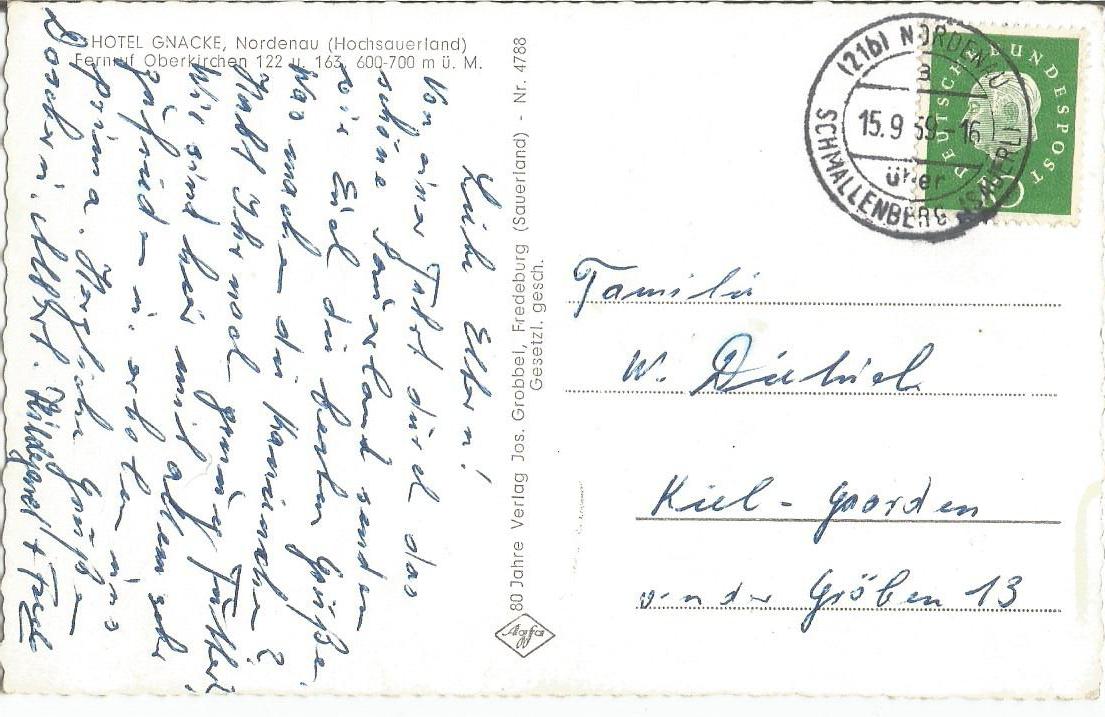 HOTEL GNACKE, Nordenau (Hochsauerland)
Fernruf Oberkirchen 122 u. 163, 600-700 m ü. M.
Liebe Eltern!
Von einer Fahrt durch das
schöne Sauerland senden
wir Euch die besten Grüße.
Was machen die Kaninchen?
Habt Ihr noch genug Futter?
Wir sind hier mit allem sehr
zufrieden u. erholen uns
prima. Herzliche Grüße
Hildegard + Fred
80 Jahre Verlag Jos. Grobbel, Fredeburg (Sauerland) - Nr. 4788
Gesetzl. gesch.
Agfa
(21b) NORDENAU
a
15.9.59-16
über
SCHMALLENBERG (SAUERL)
DEUTSCHE BUNDESPOST
Familie
W.
Kiel - Gaarden
von der Gröben 13